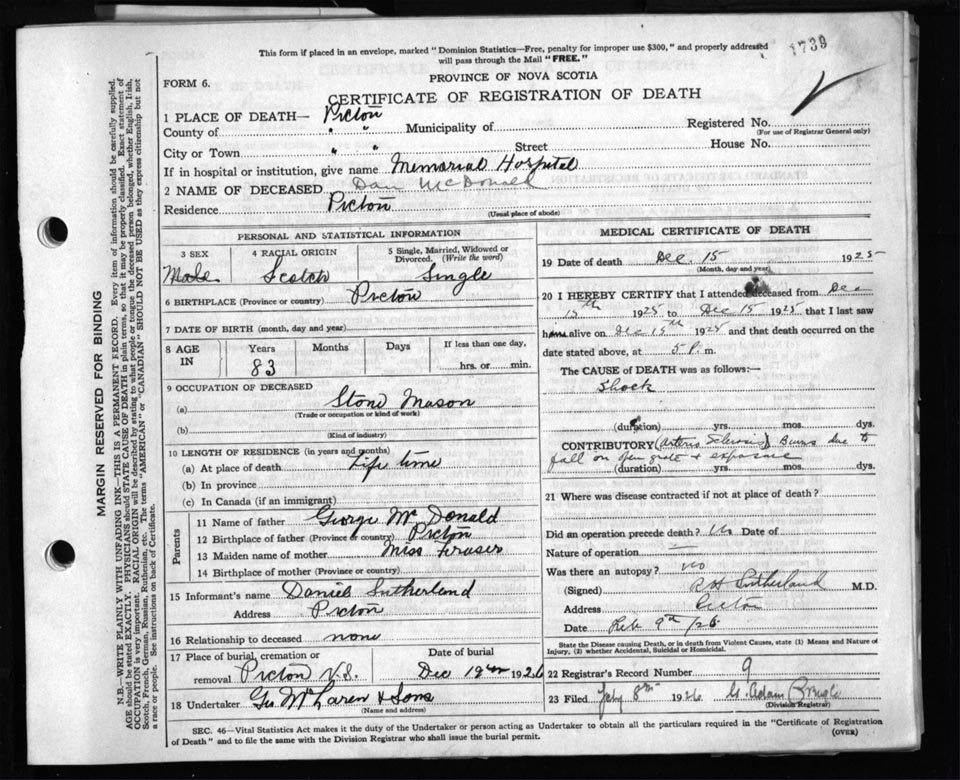 This form if placed in an envelope, marked "Dominion Statistics—Free, penalty for improper use $300," and properly addressed
will pass through the Mail "FREE."
1739
FORM 6.
PROVINCE OF NOVA SCOTIA
CERTIFICATE OF REGISTRATION OF DEATH
1 PLACE OF DEATH— Pictou
Registered No.
(For use of Registrar General only)
County of " " Municipality of
City or Town " " Street House No.
If in hospital or institution, give name Memorial Hospital
2 NAME OF DECEASED Dan McDonald
Residence Pictou
(Usual place of abode)
PERSONAL AND STATISTICAL INFORMATION
3 SEX 4 RACIAL ORIGIN 5 Single, Married, Widowed or
Divorced. (Write the word)
Male Scotch Single
6 BIRTHPLACE (Province or country) Pictou
7 DATE OF BIRTH (month, day and year)
8 AGE IN Years Months Days If less than one day,
83 hrs. or min.
9 OCCUPATION OF DECEASED
(a) Stone Mason
(Trade or occupation or kind of work)
(b)
(Kind of industry)
10 LENGTH OF RESIDENCE (in years and months)
(a) At place of death Life time
(b) In province
(c) In Canada (if an immigrant)
Parents
11 Name of father George McDonald
12 Birthplace of father (Province or country) Pictou
13 Maiden name of mother Miss Fraser
14 Birthplace of mother (Province or country)
15 Informant's name Daniel Sutherland
Address Pictou
16 Relationship to deceased none
17 Place of burial, cremation or Date of burial
removal Pictou N.S. Dec 1926
18 Undertaker Geo McLaren & Sons
(Name and address)
MEDICAL CERTIFICATE OF DEATH
19 Date of death Dec. 15 1925
(Month, day and year)
20 I HEREBY CERTIFY that I attended deceased from Dec
15th 1925 to Dec 15 1925 that I last saw
him alive on Dec 15th 1925 and that death occurred on the
date stated above, at 5 P. m.
The CAUSE of DEATH was as follows:—
Shock
(duration) yrs. mos. dys.
CONTRIBUTORY (Arterio Sclerosis) Burns due to
fall on open grate & exposure
(duration) yrs. mos. dys.
21 Where was disease contracted if not at place of death?
Did an operation precede death? No Date of
Nature of operation —
Was there an autopsy? no
(Signed) R H Sutherland M.D.
Address Pictou
Date Feb 9th/26
State the Disease causing Death, or in death from Violent Causes, state (1) Means and Nature of
Injury, (2) whether Accidental, Suicidal or Homicidal.
22 Registrar's Record Number 9
23 Filed 8th 1926 Adam
(Division Registrar)
SEC. 46—Vital Statistics Act makes it the duty of the Undertaker or person acting as Undertaker to obtain all the particulars required in the "Certificate of Registration
of Death" and to file the same with the Division Registrar who shall issue the burial permit.
(OVER)
MARGIN RESERVED FOR BINDING
N.B.—WRITE PLAINLY WITH UNFADING INK—THIS IS A PERMANENT RECORD. Every item of information should be carefully supplied.
AGE should be stated EXACTLY. PHYSICIANS should STATE CAUSE OF DEATH in plain terms, so that it may be properly classified. Exact statement of
OCCUPATION is very important. RACIAL ORIGIN will be described by stating to what people or tongue the deceased person belonged, whether English, Irish,
Scotch, French, German, Russian, Ruthenian, etc. The terms "AMERICAN" or "CANADIAN" SHOULD NOT BE USED as they express citizenship but not
a race or people. See instructions on back of Certificate.